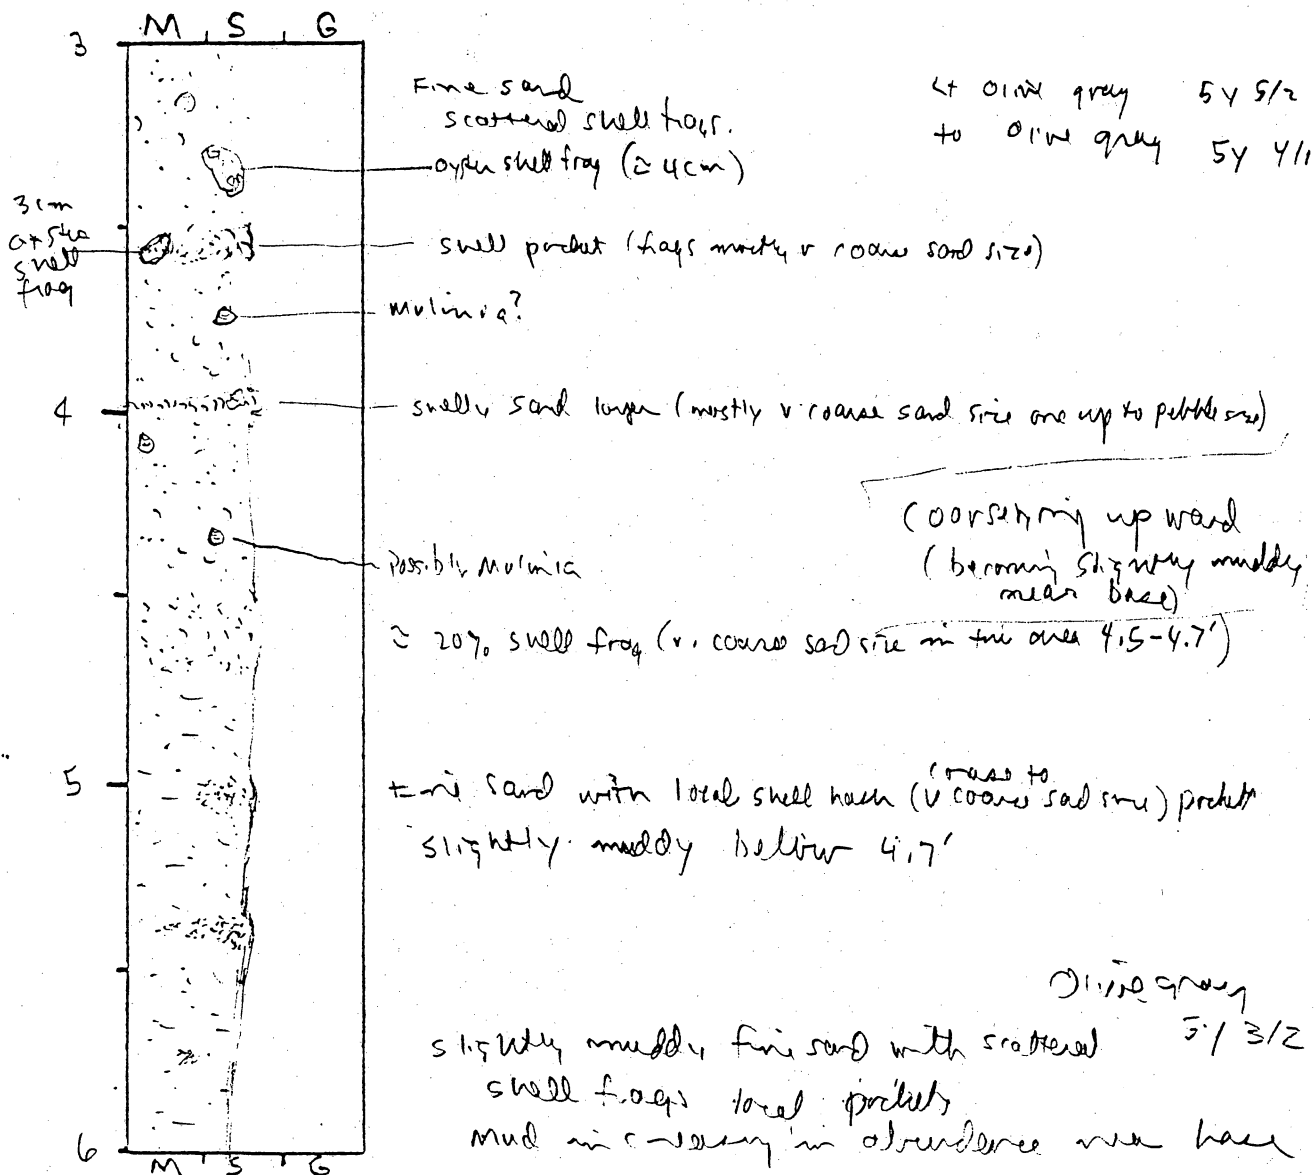 M S G
3
Fine sand
scattered shell frags.
Lt Olive gray 5Y 5/2
to Olive gray 5Y 4/1
oyster shell frag (≈ 4cm)
3cm
shell
frag
shell pocket (frags mostly v coarse sand size)
Mulinia?
4
shelly sand layer (mostly v. coarse sand size one up to pebble size)
Coarsening upward
(becoming slightly muddy
near base)
Possibly Mulinia
≈ 20% shell frag (v. coarse sad size in the area 4.5-4.7')
5
coarse to
Fine sand with local shell hash (v coarse sad size) pockets
slightly muddy below 4.7'
Olive gray
5Y 3/2
slightly muddy fine sand with scattered
shell frags local pockets
Mud increasing in abundence near base
6
M S G